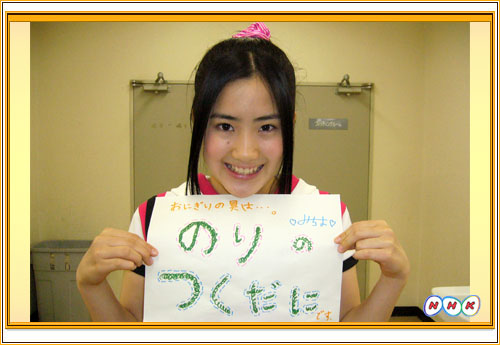 おにぎりの具は・・・。
♡みちよ♡
のりの
つくだに
です。
NHK